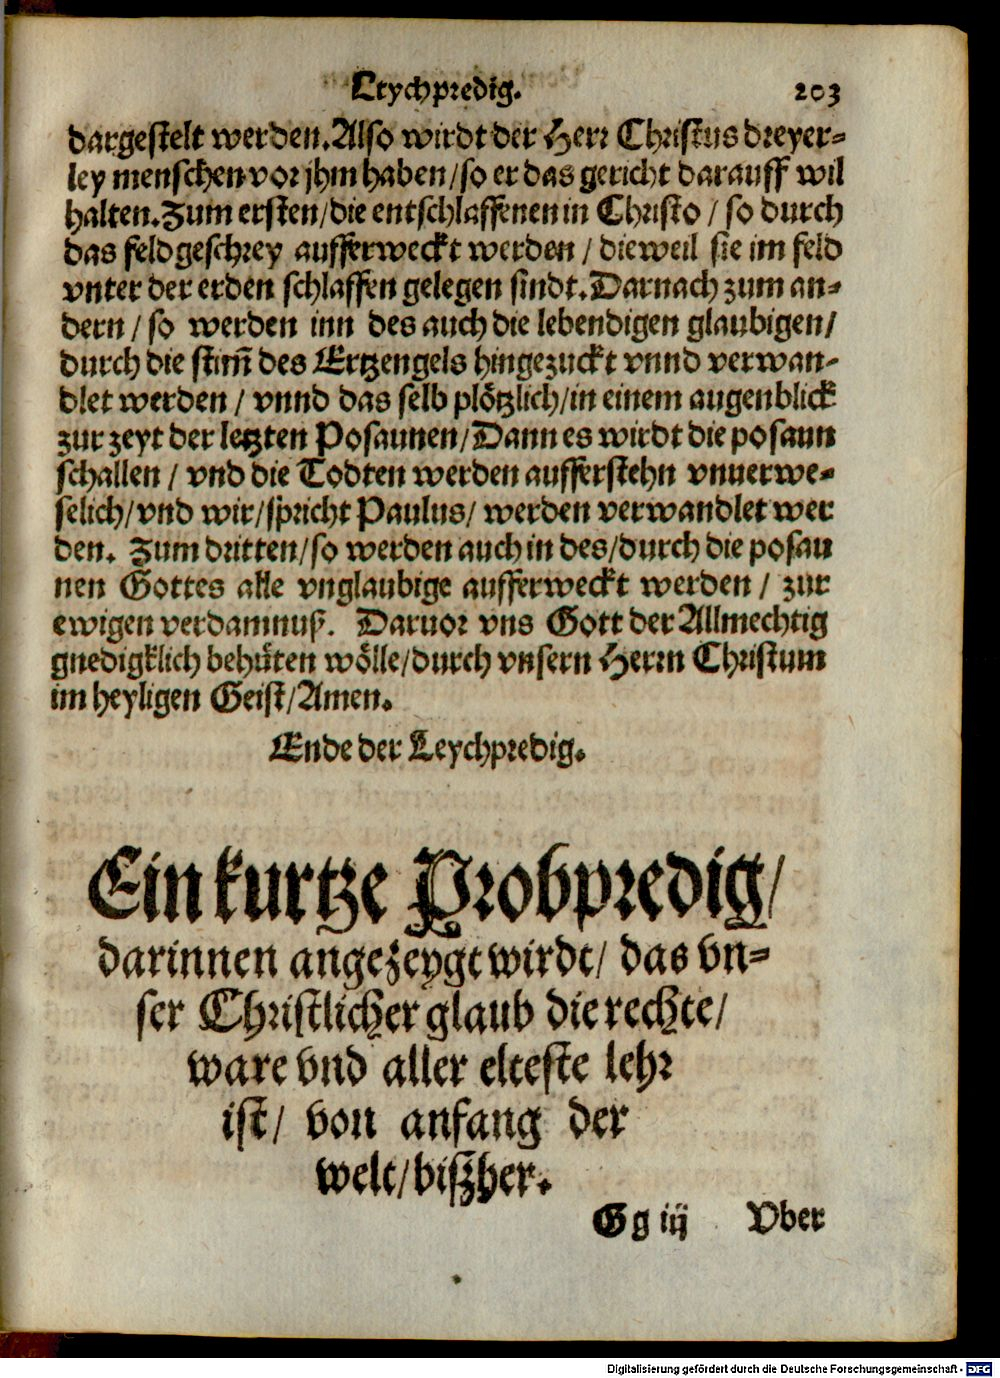 Leychpredig. 203
dargestelt werden. Also wirdt der Herr Christus dreyer=
ley menschen vor jhm haben/ so er das gericht darauff wil
halten. Zum ersten/ die entschlaffenen in Christo / so durch
das feldgeschrey aufferweckt werden / dieweil sie im feld
vnter der erden schlaffen gelegen sindt. Darnach zum an=
dern / so werden inn des auch die lebendigen glaubigen/
durch die stim̃ des Ertzengels hingezuckt vnnd verwan=
dlet werden / vnnd das selb plötzlich/ in einem augenblick
zur zeyt der letzten Posaunen/ Dann es wirdt die posaun
schallen / vnd die Todten werden aufferstehn vnuerwe=
selich/ vnd wir/ spricht Paulus/ werden verwandlet wer
den. Zum dritten/ so werden auch in des/ durch die posau
nen Gottes alle vnglaubige aufferweckt werden / zur
ewigen verdamnuß. Daruor vns Gott der Allmechtig
gnedigklich behüten wölle/ durch vnsern Herrn Christum
im heyligen Geist/ Amen.
Ende der Leychpredig.
Ein kurtze Probpredig/
darinnen angezeygt wirdt/ das vn=
ser Christlicher glaub die rechte/
ware vnd aller elteste lehr
ist/ von anfang der
welt/ bißher.
Gg iij Vber
Digitalisierung gefördert durch die Deutsche Forschungsgemeinschaft - DFG